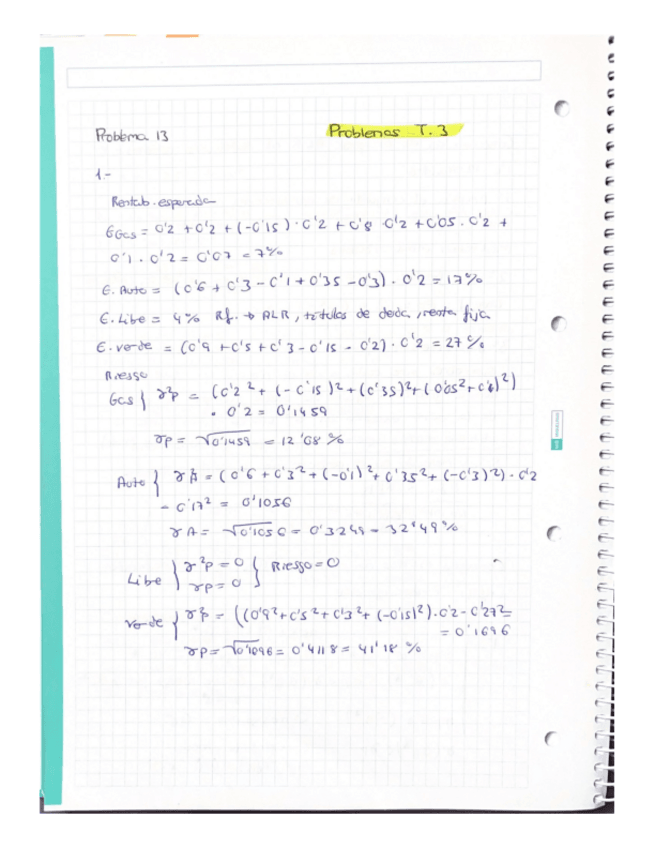 Problema 13
Problemas T.3
1.-
Rentab. esperada
EGcs = 0'2 + 0'2 + (-0'15) · 0'2 + 0'8 · 0'2 + 0'05 · 0'2 +
0'1 · 0'2 = 0'07 = 7%
E. Auto = (0'6 + 0'3 - 0'1 + 0'35 - 0'3) · 0'2 = 17%
E. Libe = 4% Rf. → ALR, títulos de deuda, renta fija
E. verde = (0'9 + 0'5 + 0'3 - 0'15 - 0'2) · 0'2 = 27%
Riesgo
Gcs { σ²p = (0'2² + (-0'15)² + (0'35)² + (0'05² + 0'1)²)
· 0'2 = 0'1459
σp = √0'1459 = 12'68%
Auto { σ²A = (0'6 + 0'3² + (-0'1)² + 0'35² + (-0'3)²) · 0'2
- 0'17² = 0'1056
σA = √0'1056 = 0'3249 = 32'49%
Libe { σ²p = 0 } Riesgo = 0
σp = 0
Verde { σ²p = ((0'9² + 0'5² + 0'3² + (-0'15)²) · 0'2 - 0'27² =
= 0'1696
σp = √0'1696 = 0'4118 = 41'18%